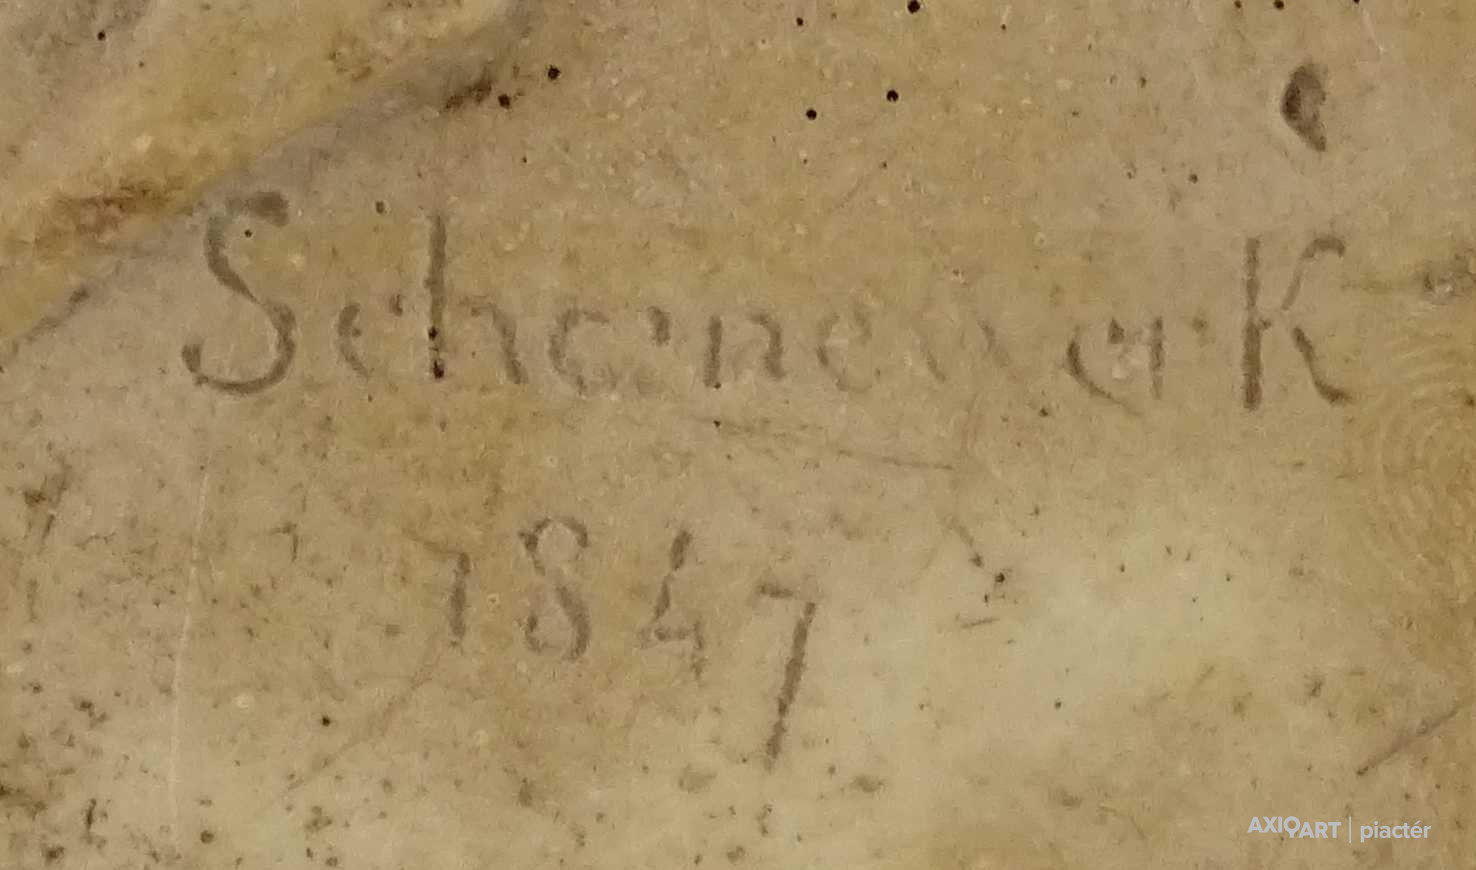 Schenewerk
1847
AXIOART | piactér